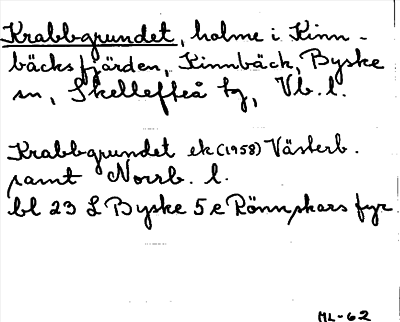 Krabbgrundet, holme i Kinn-
bäcksfjärden, Kinnbäck, Byske
sn, Skellefteå tg, Vb. l.
Krabbgrundet ek (1958) Västerb.
samt Norrb. l.
bl 23 L Byske 5 e Rönnskärs fyr
ML-62